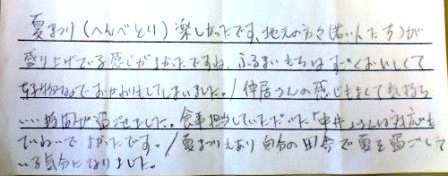 夏まつり(へんべとり)楽しかったです。地元の方々(若い人たち)が
盛り上げている感じがよかったですね、ふるまいもちはすごくおいしくて
おかわりもしてしまいました。/仲居さんの感じもよくて気持ち
過ごせました。食事担当していただいた「中井」さんは対応も
ていねいでよかったです。/夏まつりもあり自分の田舎で夏を過ごして
いる気分になりました。